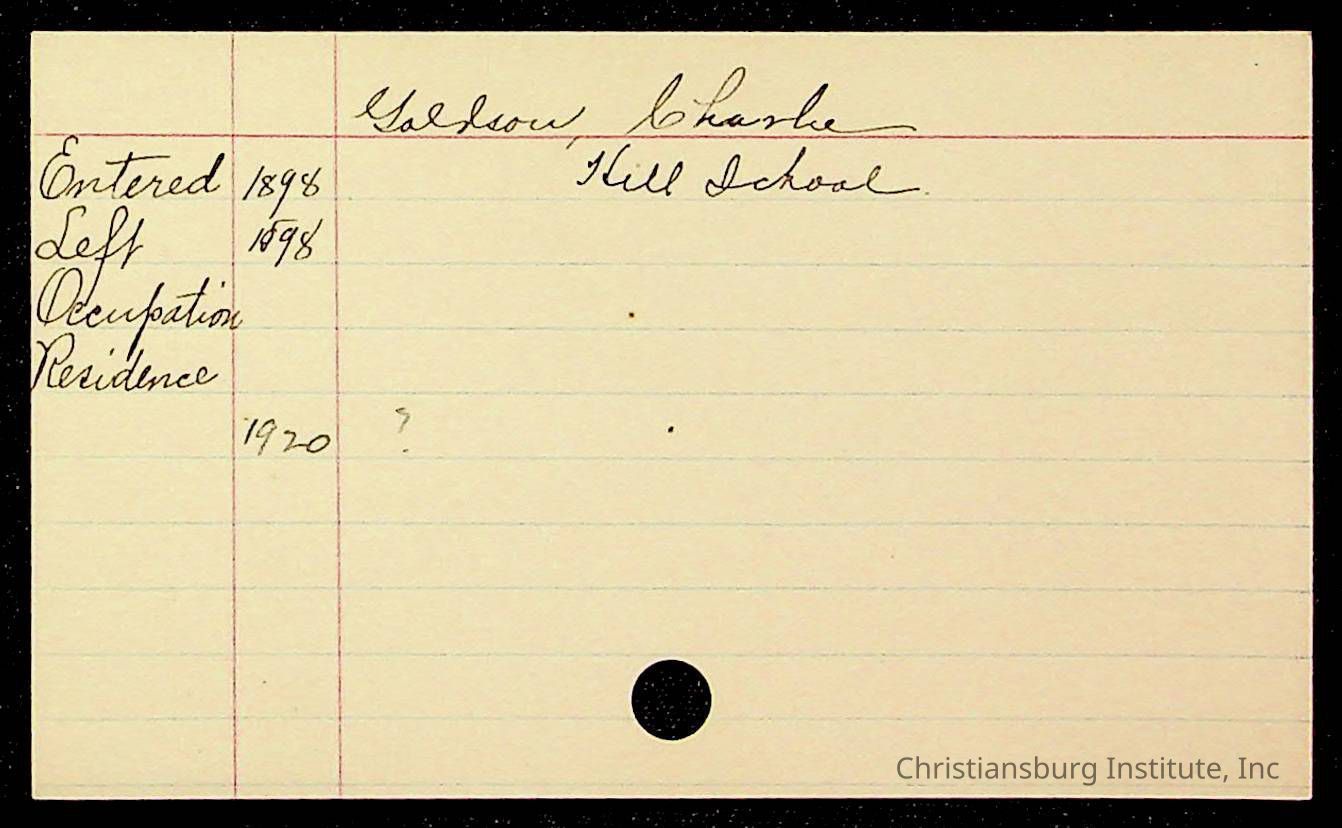 Goldson, Charlie
Entered 1898 Hill School
Left 1898
Occupation
Residence
1920 ?
Christiansburg Institute, Inc